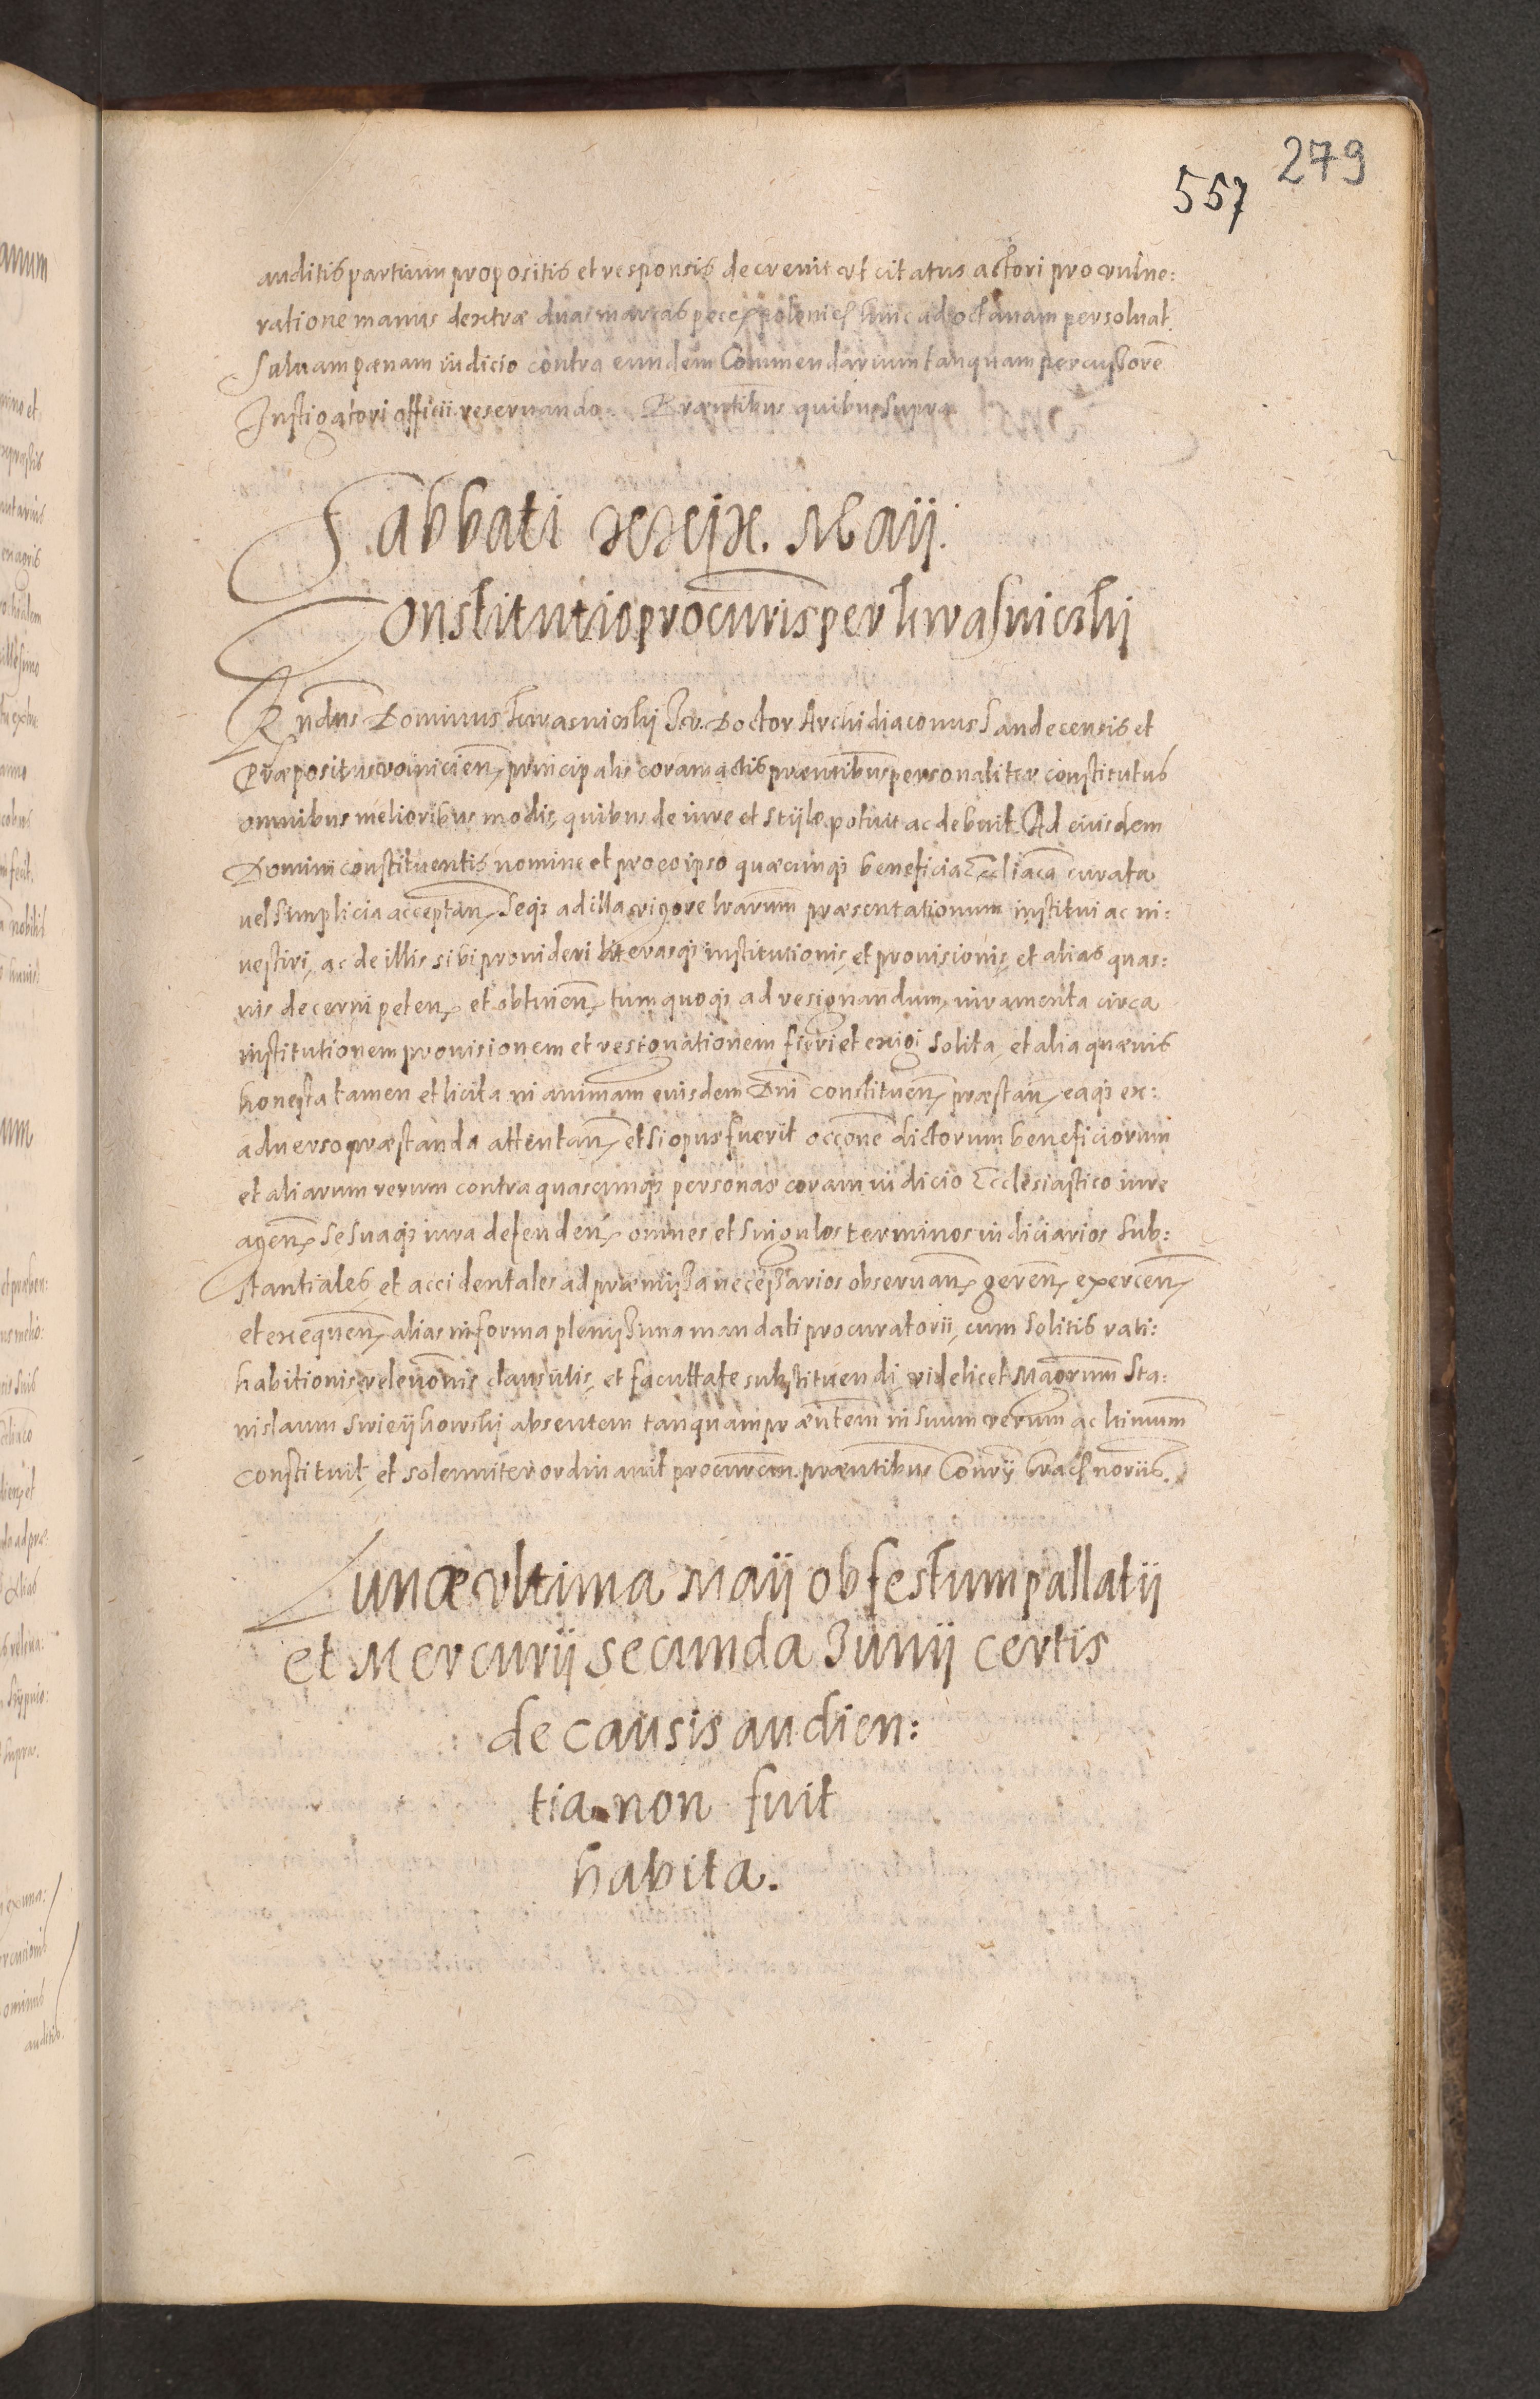 279
557
auditis partium propositis et responsis decrevit ut citatus actori pro vulne:
ratione manus dextræ duas marcas pecẽ polonicꝭ hinc ad octavam persolvat.
Salvam pœnam iudicio contra eundem Commendarium tanquam percussorẽ
Instigatori officii reservando. Præntibus quibus supra
Sabbati xxix. Maij.
Constitutio procuris per kwasnicskij
Rndus Dominus kwasnicskij I.v. Doctor Archidiaconus Sandecensis et
Præpositus voinicien̄ principalis coram actis præntibus personaliter constitutus
omnibus melioribus modis, quibus de iure et stylo potuit ac debuit. Ad eiusdem
Domini constituentis nomine et pro eo ipso quæcunqꝫ beneficia Ecclīaca curata
vel simplicia acceptan̄ seqꝫ ad illa vigore lrarum præsentationum institui ac in:
vestiri, ac de illis sibi provideri literasqꝫ institutionis, et provisionis, et alias quas:
vis decerni peten̄ et obtinen̄ tum quoqꝫ ad resignandum, iuramenta circa
institutionem provisionem et resignationem fieri et exigi solita, et alia quævis
honesta tamen et licita in animam eiusdem Dni constituen̄ præstan̄ eaqꝫ ex:
adverso præstanda attentan̄ et si opus fuerit occone dictorum beneficiorum
et aliarum rerum contra quascunqꝫ personas coram iudicio Ecclesiastico iure
agen̄ se suaqꝫ iura defenden̄ omnes et singulos terminos iudiciarios sub:
stantiales et accidentales ad præmissa necessarios observan̄ geren̄ exercen̄
et exequen̄ alias in forma plenissima mandati procuratorii, cum solitis rati:
habitionis, relevonis clausulis, et facultate substituendi, videlicet Magrum Sta:
nislaum swieijkowskij absentem tanquam præntem in suum verum ac ltimum
constituit, et solenniter ordinavit procurem. præntibus
Lunæ ultima Maij ob festum pallatij
et Mercurij secunda Junij certis
de causis audien:
tia non fuit
habita.